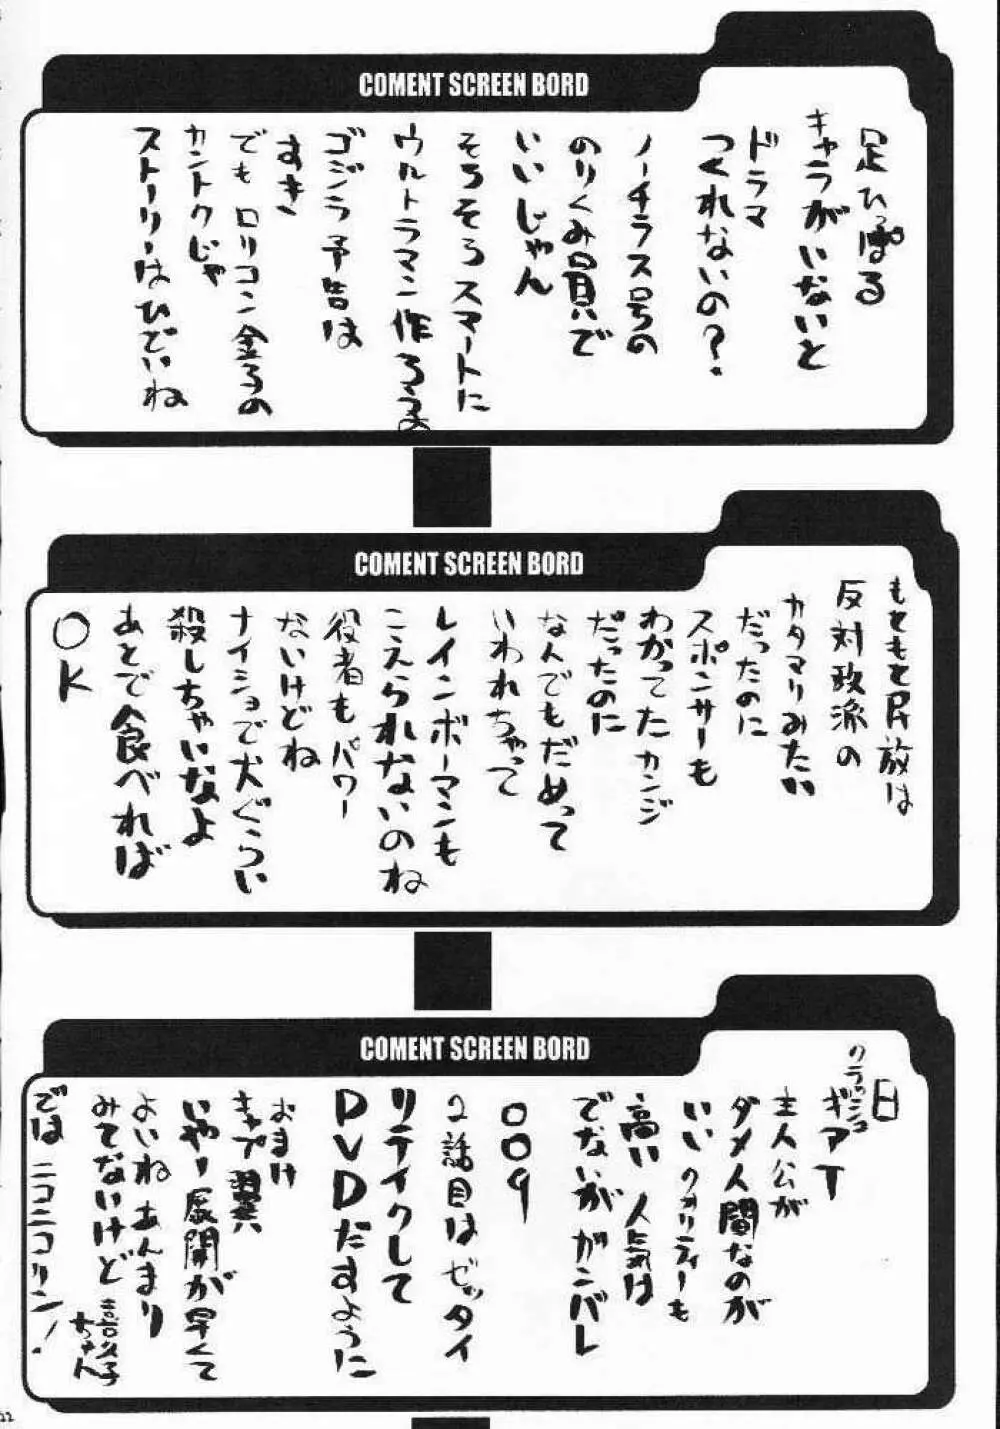 COMENT SCREEN BORD
足ひっぱる
キャラがいないと
ドラマ
つくれないの?
ノーチラス号の
のりくみ員で
いいじゃん
そろそろスマートに
ウルトラマン作ろうよ
ゴジラ予告は
すき
でもロリコン金子の
カントクじゃ
ストーリーはひどいね
COMENT SCREEN BORD
もともと民放は
反対政派の
カタマリみたい
だったのに
スポンサーも
わかってたカンジ
だったのに
なんでもだめって
いわれちゃって
レインボーマンも
こえられないのね
役者もパワー
ないけどね
ナイショで犬ぐらい
殺しちゃいなよ
あとで食べれば
OK
COMENT SCREEN BORD
日
クラッシュ
ギアT
主人公が
ダメ人間なのが
いいクオリティーも
高い人気は
でないがガンバレ
009
2話目はゼッタイ
リテイクして
DVDだすように
おまけ
キャプ翼
いやー展開が早くて
よいねあんまり
みてないけど喜公子
ちゃん
では ニコニコリン!
22